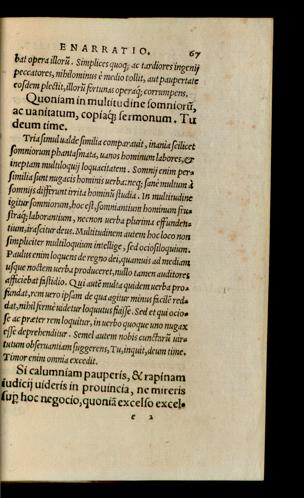 ENARRATIO. 67
bat opera illorũ. Simplices quoq; ac tardiores ingenij
peccatores, nihilominus è medio tollit, aut paupertate
eosdem plectit, illorũ fortunas operaq; corrumpens.
Quoniam in multitudine somniorũ,
ac uanitatum, copiaq; sermonum. Tu
deum time.
Tria simul ualde similia comparauit, inania scilicet
somniorum phantasmata, uanos hominum labores, &
ineptam multiloquij loquacitatem. Somnij enim per-
similia sunt nugacis hominis uerba: neq; sanè multum à
somnijs differunt irrita hominũ studia. In multitudine
igitur somniorum, hoc est, somniantium hominum fru-
straq; laborantium, necnon uerba plurima effunden-
tium, irascitur deus. Multitudinem autem hoc loco non
simpliciter multiloquium intellige, sed ociosiloquium.
Paulus enim loquens de regno dei, quamuis ad mediam
usque noctem uerba produceret, nullo tamen auditores
afficiebat fastidio. Qui autẽ multa quidem uerba pro-
fundat, rem uero ipsam de qua agitur minus facilè red-
dat, nihil firmè uidetur loquutus fuisse. Sed et qui ocio-
se ac præter rem loquitur, in uerbo quoque uno nugax
esse deprehenditur. Semel autem nobis cunctarũ uir-
tutum obseruantiam suggerens, Tu, inquit, deum time.
Timor enim omnia excedit.
Si calumniam pauperis, & rapinam
iudicij uideris in prouincia, ne mireris
sup hoc negocio, quoniã excelso excel-
e 2